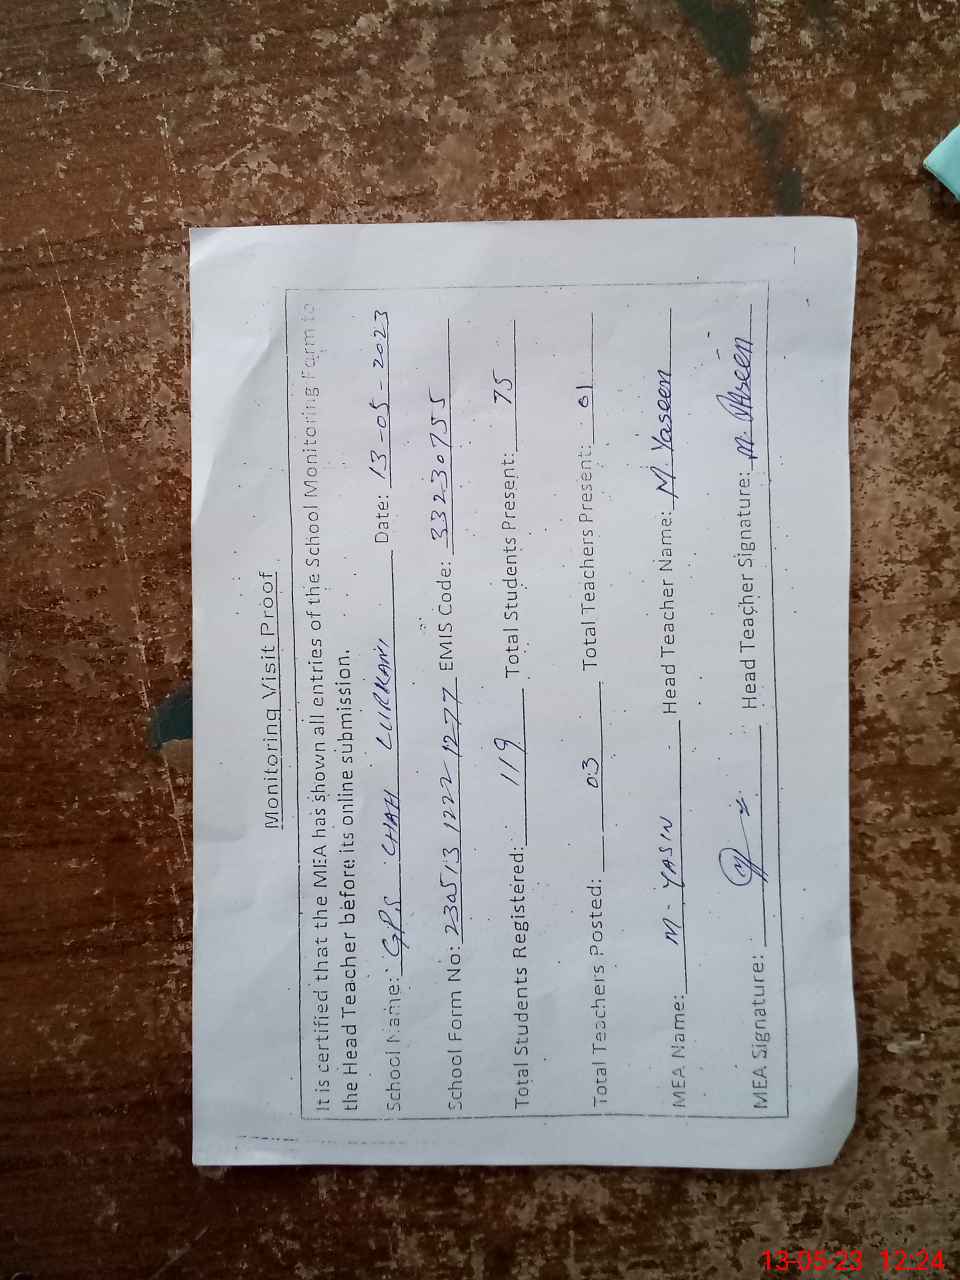 Monitoring Visit Proof
It is certified that the MEA has shown all entries of the School Monitoring Form to
the Head Teacher before its online submission.
School Name: GPS CHAH LURKANI Date: 13-05-2023
School Form No: 230513 1222 1277 EMIS Code: 33230755
Total Students Registered: 119 Total Students Present: 75
Total Teachers Posted: 03 Total Teachers Present: 01
MEA Name: M. YASIN Head Teacher Name: M. Yaseen
MEA Signature: Head Teacher Signature: M. Yaseen
13-05-23 12:24